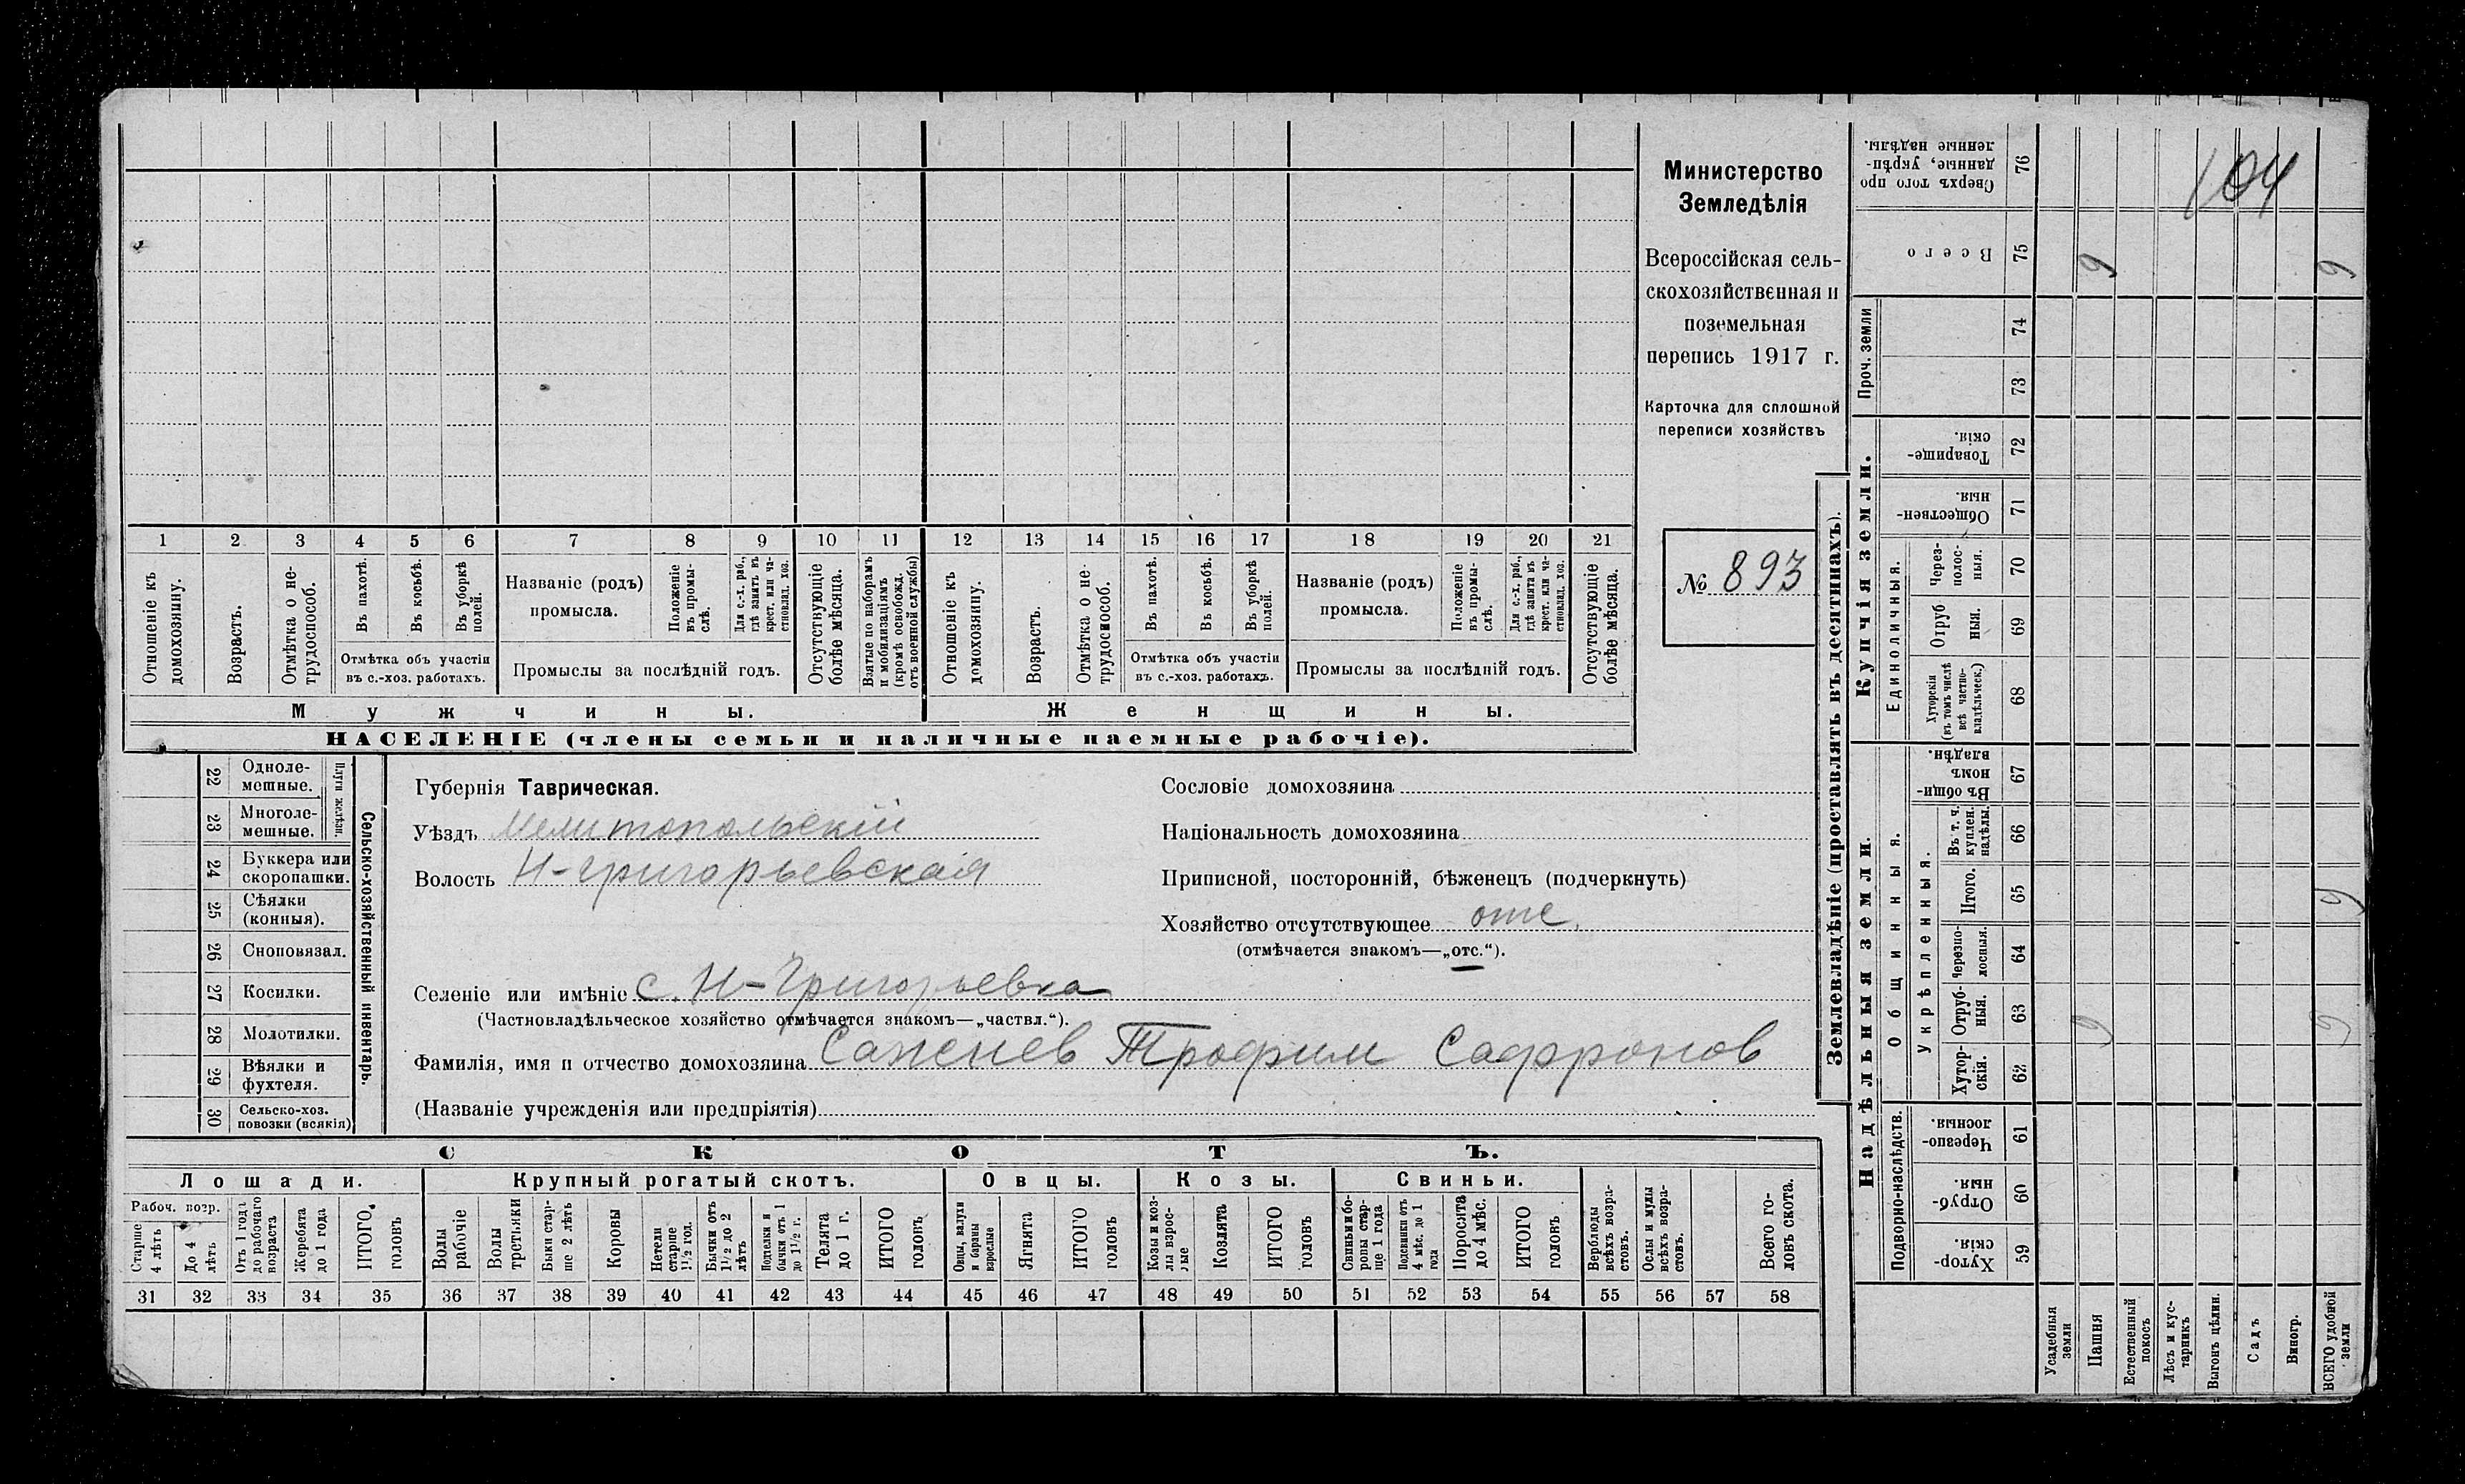 104
Министерство
Земледѣлія
Всероссійская сель-
скохозяйственная и
поземельная
перепись 1917 г.
Карточка для сплошной
переписи хозяйствъ
№ 893
1 2 3 4 5 6 7 8 9 10 11 12 13 14 15 16 17 18 19 20 21
Отношеніе къ домохозяину.
Возрастъ.
Отмѣтка о не-трудоспособ.
Въ пахотѣ.
Въ косьбѣ.
Въ уборкѣ полей.
Отмѣтка объ участіи
въ с.-хоз. работахъ.
Названіе (родъ)
промысла.
Положеніе въ промы-слѣ.
Для с.-х. раб., гдѣ занятъ въ крест. или ча-стновлад. хоз.
Промыслы за послѣдній годъ.
Отсутствующіе болѣе мѣсяца.
Взятые по наборамъ и мобилизаціямъ (кромѣ освобожд. отъ военной службы)
Отношеніе къ домохозяину.
Возрастъ.
Отмѣтка о не-трудоспособ.
Въ пахотѣ.
Въ косьбѣ.
Въ уборкѣ полей.
Отмѣтка объ участіи
въ с.-хоз. работахъ.
Названіе (родъ)
промысла.
Положеніе въ промы-слѣ.
Для с.-х. раб., гдѣ занята въ крест. или ча-стновлад. хоз.
Промыслы за послѣдній годъ.
Отсутствующіе болѣе мѣсяца.
Мужчины.
Женщины.
НАСЕЛЕНІЕ (члены семьи и наличные наемные рабочіе).
22 Одноле-мешные.
23 Многоле-мешные.
Плуги желѣзн.
24 Буккера или скоропашки.
25 Сѣялки (конныя).
26 Сноповязал.
27 Косилки.
28 Молотилки.
29 Вѣялки и фухтеля.
30 Сельско-хоз. повозки (всякія)
Сельско-хозяйственный инвентарь.
Губернія Таврическая.
Уѣздъ Мелитопольскій
Волость Н-Григорьевская
Селеніе или имѣніе с. Н-Григорьевка
(Частновладѣльческое хозяйство отмѣчается знакомъ—„частвл.“).
Фамилія, имя и отчество домохозяина Саженев Трофим Сафронов
(Названіе учрежденія или предпріятія)
Сословіе домохозяина
Національность домохозяина
Приписной, посторонній, бѣженецъ (подчеркнуть)
Хозяйство отсутствующее отс.
(отмѣчается знакомъ—„отс.“).
СКОТЪ.
Лошади.
Крупный рогатый скотъ.
Овцы.
Козы.
Свиньи.
Рабоч. возр.
Старше 4 лѣтъ
До 4 лѣтъ
Отъ 1 года до рабочаго возраста
Жеребята до 1 года
ИТОГО головъ
Волы рабочіе
Волы третьяки
Быки стар-ше 2 лѣтъ
Коровы
Нетели старше 1½ год.
Бычки отъ 1½ до 2 лѣтъ
Подтелки и бычки отъ 1 до 1½ г.
Телята до 1 г.
ИТОГО головъ
Овцы, валухи и бараны взрослые
Ягнята
ИТОГО головъ
Козы и коз-лы взрос-лые
Козлята
ИТОГО головъ
Свиньи и бо-ровы стар-ше 1 года
Подсвинки отъ 4 мѣс. до 1 года
Поросята до 4 мѣс.
ИТОГО головъ
Верблюды всѣхъ возра-стовъ.
Ослы и мулы всѣхъ возра-стовъ.
Всего го-ловъ скота.
31 32 33 34 35 36 37 38 39 40 41 42 43 44 45 46 47 48 49 50 51 52 53 54 55 56 57 58
Землевладѣніе (проставлять въ десятинахъ).
Купчія земли.
Надѣльныя земли.
Сверхъ того про данные, укрѣп-ленные надѣлы. 76
Всего 75 9 9
Проч. земли 74 73
Товарище-скія. 72
Обществен-ныя. 71
Единоличныя.
Через-полос-ныя. 70
Отруб ныя. 69
Хуторскія (въ томъ числѣ всѣ частно-владѣльческ.) 68
Общинныя.
Въ общи-номъ владѣн. 67
Укрѣпленныя.
Въ т. ч. куплен. надѣлы. 66
Итого. 65 9
Черезпо-лосныя. 64
Отруб-ныя. 63 9 9
Хутор-скія. 62
Подворно-наслѣдств.
Черезпо-лосныя. 61
Отруб-ныя. 60
Хутор-скія. 59
Усадебныя земли
Пашня
Естественный покосъ
Лѣсъ и кус-тарникъ
Выгонъ цѣлин.
Садъ
Виногр.
ВСЕГО удобной земли